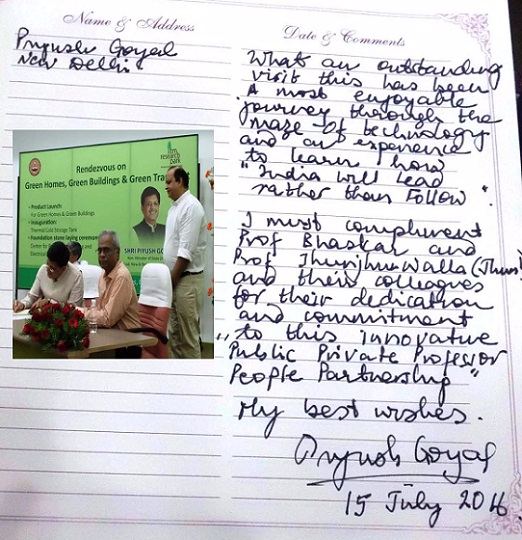 Name & Address
Piyush Goyal
New Delhi
Date & Comments
What an outstanding
visit this has been
A most enjoyable
journey through the
maze of technology
and an experience
to learn how
"India will lead
rather than Follow".
I must compliment
Prof Bhaskar and
Prof Jhunjhunwalla (Jhunj
and their colleagues
for their dedication
and commitment
to this innovative
"Public Private Professor
People Partnership"
My best wishes.
Piyush Goyal
15 July 2016
iitm
research
park
Rendezvous on
Green Homes, Green Buildings & Green Tra
Product Launch:
For Green Homes & Green Buildings
Inauguration:
Thermal Cold Storage Tank
Foundation stone laying ceremony
Center for
Electrical
SHRI PIYUSH GO
Hon. Minister of State